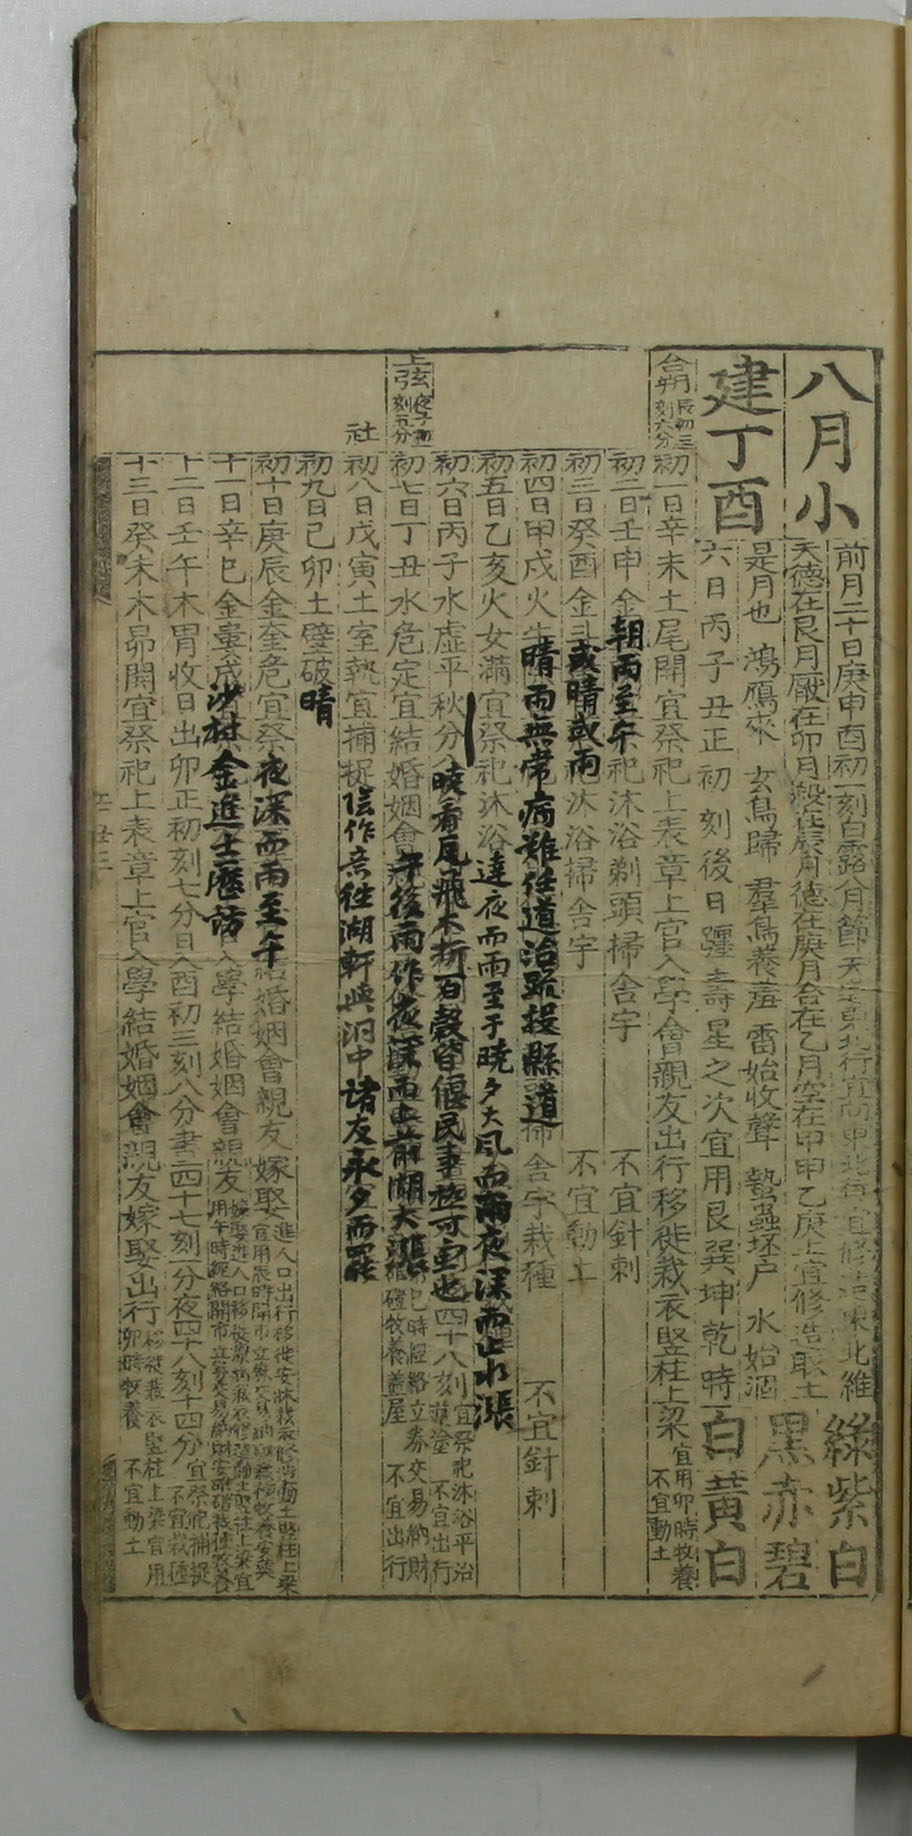 八月小
建丁酉
前月二十日庚申酉初一刻白露八月節天道東北行宜向東北行宜修造東北維
天德在艮月厭在卯月殺在辰月德在庚月合在乙月空在甲甲乙庚上宜修造取土
是月也 鴻鴈來 玄鳥歸 羣鳥養羞 雷始收聲 蟄蟲坯戶 水始涸
六日丙子丑正初刻後日躔壽星之次宜用艮巽坤乾時
綠紫白
黑赤碧
白黃白
合朔辰初三刻六分
初一日辛未土尾開宜祭祀上表章上官入學會親友出行移徙裁衣竪柱上梁宜用卯時牧養不宜動土
初二日壬申金 祭祀沐浴剃頭掃舍宇 不宜針刺
朝雨至午
初三日癸酉金斗 祀沐浴掃舍宇 不宜動土
或晴或雨
初四日甲戌火牛 掃舍宇栽種 不宜針刺
晴雨無常病難任道治疏投縣道
初五日乙亥火女滿宜祭祀沐浴
達夜而雨至于曉夕大風而雨夜深而止水漲
初六日丙子水虛平秋分 四十八刻宜祭祀沐浴平治道塗 不宜出行
曉看尾飛木折百穀皆偃民事極可
上弦夜子初一刻五分
初七日丁丑水危定宜結婚姻會 巳時經絡立券交易納財 碓磑牧養蓋屋 不宜出行
午後雨作夜深而止前湖大漲
社
初八日戊寅土室執宜捕捉
信作 往湖軒與洞中諸友永夕而罷
初九日己卯土壁破
晴
初十日庚辰金奎危宜祭 結婚姻會親友嫁娶進人口出行移徙安牀裁衣修造動土竪柱上梁宜用辰時開市立券交易納財栽種牧養安葬
夜深而雨至午
十一日辛巳金婁成 入學結婚姻會親友嫁娶進人口移徙 用午時經絡開市立券交易納財安碓磑栽種牧養
沙村金進士歷訪
十二日壬午木胃收日出卯正初刻七分日入酉初三刻八分晝四十七刻一分夜四十八刻十四分宜祭祀捕捉不宜栽種
十三日癸未木昴開宜祭祀上表章上官入學結婚姻會親友嫁娶出行移徙裁衣竪柱上梁宜用卯時牧養 不宜動土